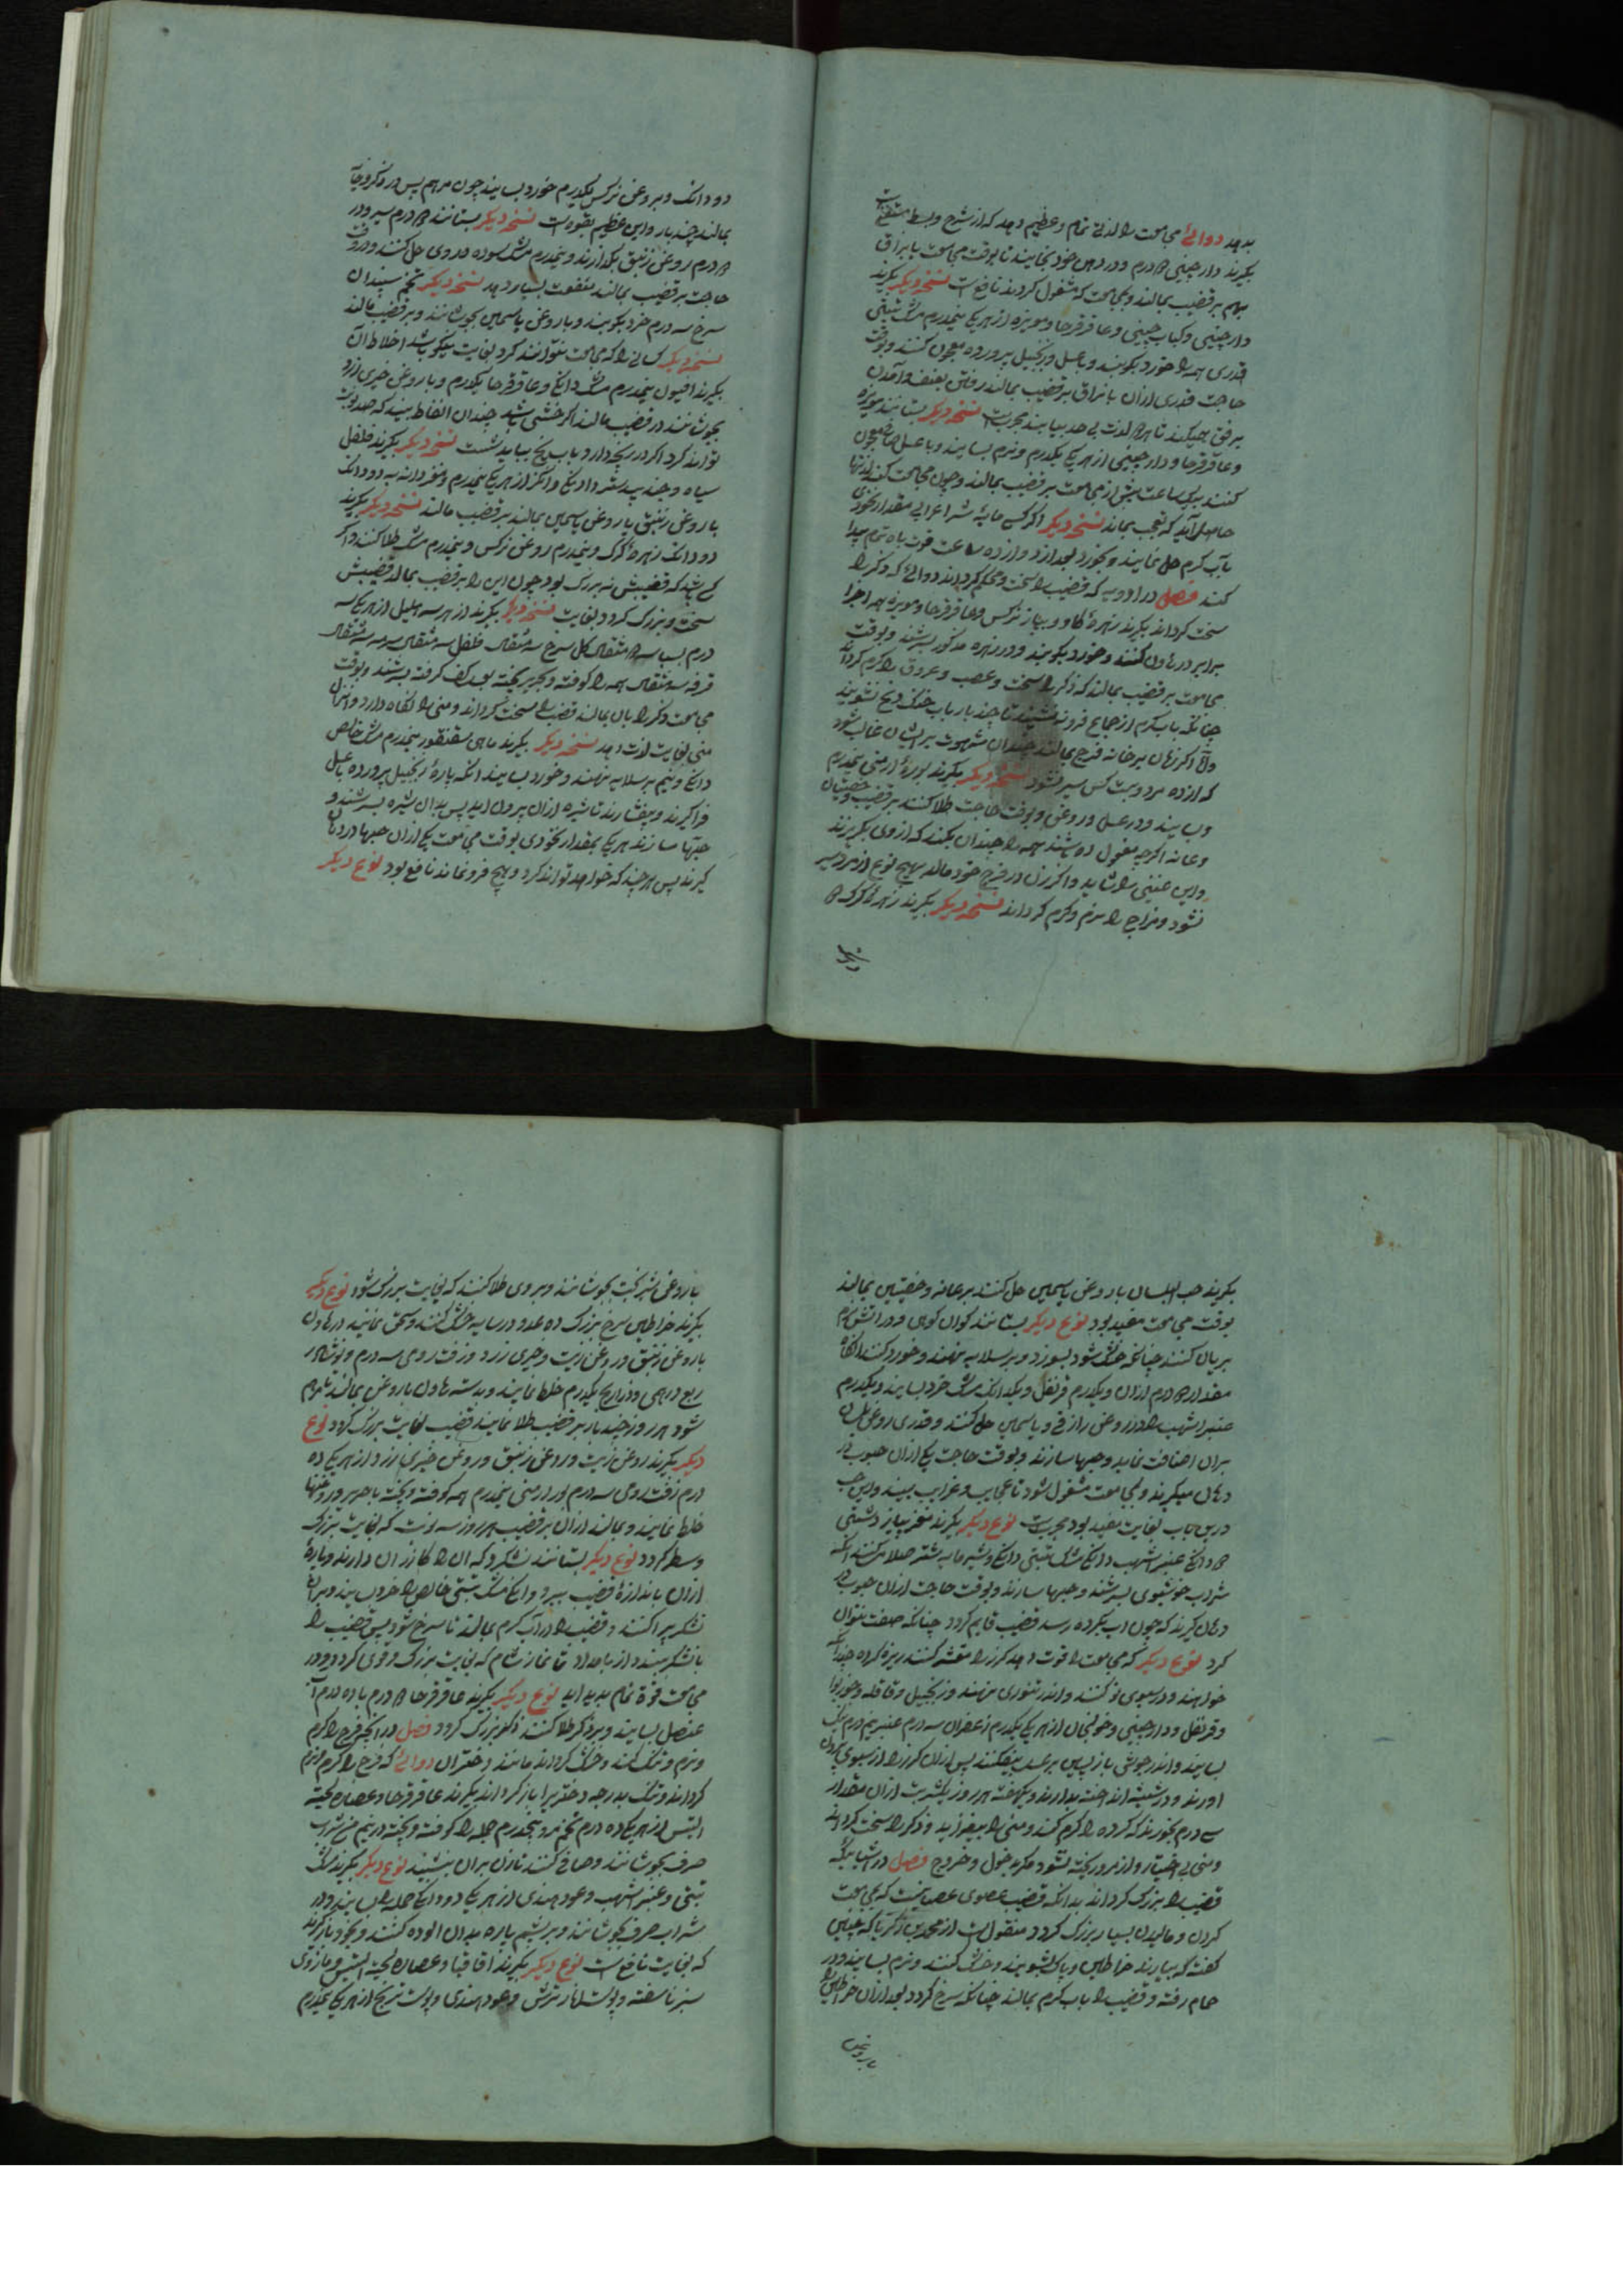 بدهد دوائی مجامعت را لذتی تمام و عظیم دهد که از شرح و بسط مستغنیست
بگیرند دارچینی درم و در دهن خود بخایند تا بوقت مجامعت با بزاق
بهم بر قضیب بمالند و بمجامعت که مشغول گردند نافع است نسخه دیگر بگیرند
دارچینی و کباب چینی و عاقرقرحا و مویزه از هر یک نیمدرم مشک تبتی
قدری همه را خورد بکوبند و با عسل و زنجبیل پرورده معجون کنند و بوقت
حاجت قدری ازان با بزاق بر قضیب بمالند رفتن بعنف و آمدن
برفق میکند تا هر دو لذت بی حد بیابند مجربست نسخه دیگر بستانند مویزه
و عاقرقرحا و دارچینی از هر یک یکدرم و نرم بسایند و با عسل صافی معجون
کنند یک ساعت پیش از مجامعت بر قضیب بمالند و چون مجامعت کنند لذتها
حاصل آید که تعجب بماند نسخه دیگر اگر کس مایه شتر اعرابی مقدار نخودی
بآب گرم حل نمایند و بخورد بعد از دوازده ساعت قوت باه تمام پیدا
کند فصل در ادویه که قضیب را سخت و محکم گرداند دوائی که ذکر را
سخت گرداند بگیرند زهره گاو و پیاز نرگس و عاقرقرحا و مویزه همه اجزا
برابر در هاون کنند و خورد بکوبند و در زهره مذکور بسرشند و بوقت
مجامعت بر قضیب بمالند که ذکر را سخت و عصب و عروق را گرم گرداند
چنانکه باب گرم از جماع فرو ننشیند تا چند بار باب خنک و یخ نشویند
و اگر زنان بر خانه فرج بمالند چندان شهوت بر ایشان غالب شود
که از ده مرد و بیست کس سیر نشود نسخه دیگر بگیرند بوره ارمنی نیمدرم
و بسایند و در عسل و روغن و بوقت حاجت طلا کنند بر قضیب و خصیتان
و عانه اگر چه مفعول ده باشند همه را چندان بکند که از وی بگریزند
و این عنینی را شاید و اگر زن در فرج خود مالد بهیچ نوع از مرد سیر
نشود و مزاج را نرم و گرم گرداند نسخه دیگر بگیرند زهره گرگ
دو دانک و بروغن نرگس یکدرم خورد بسایند چون مرهم پس در ذکر و خایه
بمالند چند بار و این عظیم بقوه است نسخه دیگر بستانند درم سیر و در
درم روغن زنبق بگدازند و نیمدرم مشک سوده در وی حل کنند و در وقت
حاجت بر قضیب بمالند منفعت بسیار دهد نسخه دیگر تخم سپندان
سرخ سه درم خرد بکوبند و با روغن یاسمین بجوشانند و بر قضیب مالند
نسخه دیگر کسانی را که مجامعت نتوانند کرد بغایت نیکو باشد اخلاط آن
بگیرند افیون نیمدرم مشک دانگی و عاقرقرحا یکدرم و با روغن خیری زرد
بجوشانند در قضیب مالند اگر خنثی باشد چندان الفاظ بیند که صد نوبت
تواند کرد اگر در یخ دارد باب یخ بباید شست نسخه دیگر بگیرند فلفل
سیاه و جند بیدستر دانگی و انگز از هر یک نیمدرم و مغز دانه به دو دانگ
با روغن زنبق یا روغن یاسمین بمالند بر قضیب مالند نسخه دیگر بگیرند
دو دانک زهره گرگ و نیمدرم روغن نرگس و نیمدرم مشک طلا کنند و اگر
کسی باشد که قضیبش نه بزرگ بود چون این را بر قضیب بمالد قضیبش
سخت و بزرگ گردد بغایت نسخه دیگر بگیرند از هر سه هلیل از هر یک سه
درم بسباسه مثقال گل سرخ سه مثقال فلفل سه مثقال سرمه سه مثقال
قرفه سه مثقال همه را کوفته و بحریر بیخته بعسل کف گرفته بسرشند و بوقت
مجامعت ذکر را بان بمالند قضیب را سخت گرداند و منی را نگاه دارد و انزال
منی بغایت لذت دهد نسخه دیگر بگیرند ماهی سقنقور نیمدرم مشک خالص
دانگی و نیم بر سلایه نهند و خورد بسایند انگه پاره زنجبیل پرورده با عسل
فرا گیرند و بیفشارند تا شیره ازان بیرون اید پس بدان شیره بسرشند و
حبها سازند هر یک بمقدار نخودی بوقت مجامعت یکی ازان حبها در دهان
گیرند پس هر چند که خواهد تواند کرد و هیچ فرو نماند نافع بود نوع دیگر
بگیرند حب البلسان با روغن یاسمین حل کنند بر عانه و خصیتین بمالند
بوقت مجامعت مفید بود نوع دیگر بستانند کوان کوهی و در اتش نرم
بریان کنند چنانکه خشک شود بسوزد و بر سلایه نهند و خورد کنند انگاه
مقدار درم ازان و یکدرم قرنفل و یکدانک مشک خرد بسایند و یکدرم
عنبر اشهب را در روغن رازقی و یاسمین حل کنند و قدری روغن بلسان
بران اضافت نماید و حبها سازند و بوقت حاجت یکی ازان حبوب در
دهان میگیرند و بمجامعت مشغول شود تا عجایب و غرایب بیند و این حب
درین باب بغایت مفید بود مجربست نوع دیگر بگیرند مغز پیاز دشتی
دانگی عنبر اشهب دانگی مشک تبتی دانگی و شیر مایه شتر صلایه کنند انگه
شراب خوشبوی بسرشند و حبها سازند و بوقت حاجت ازان حبوب در
دهان گیرند که چون اب بگرده رسد قضیب قایم گردد چنانکه صفت نتوان
کرد نوع دیگر که مجامعت را قوت دهد گزر را مقشر کنند ریزه کرده چندانکه
خواهند و در سبوی نو کنند و اندر تنوری نهند و زنجبیل و قاقله و جوزبوا
و قرنفل و دارچینی و خولنجان از هر یک یکدرم زعفران سه درم عنبر نیم درم نیک
بسایند و اندر جوشی باز پسین بر عسل بیفکنند پس ازان گزر را از سبوی بیرون
اورند و در شیشه انداخته بدارند و یکهفته هر روز یکشربت ازان مقدار
سی درم بخورند که گرده را گرم کند و منی را بیفزاید و ذکر را سخت گرداند
و منی بی اختیار و از مرد ریخته نشود مگر بدخول و خروج فصل در اشیائیکه
قضیب را بزرگ گرداند بدانکه قضیب عضوی عصبیست که بمجامعت
کردن و مالیدن بسیار بزرگ گردد منقول است از محمد بن زکریا که چنین
گفت که بیارند خراطین و پاک بشویند و خشک کنند و نرم بسایند و در
حمام رفته و قضیب را باب گرم بمالند چنانکه سرخ گردد بعد ازان خراطین را
با روغن
با روغن شیربخت بجوشانند و بر وی طلا کنند که بغایت بزرگ شود نوع دیگر
بگیرند خراطین سرخ بزرگ ده عدد و در سایه خشک کنند و سحق نمایند در هاون
با روغن زنبق و روغن زیت و خیری زرد و زفت رومی سه درم و نوشادر
ربع درهمی و ذراریح یکدرم خلط نمایند و بدسته هاون با روغن بمالند تا مرهم
شود هر روز چند بار بر قضیب طلا نمایند قضیب بغایت بزرگ گردد نوع
دیگر بگیرند روغن زیت و روغن زنبق و روغن خیری زرد از هر یک ده
درم زفت رومی سه درم بوره ارمنی نیمدرم همه کوفته و بیخته با حریر و روغنها
خلط نمایند و بمالند ازان بر قضیب هر روز سه نوبت که بغایت بزرگ
و سطبر گردد نوع دیگر بستانند نشکرد که ان را گازران دارند و پاره
ازان باندازه قضیب ببرد و دانگی مشک تبتی خالص را خرد بسایند و بران
نشکر پراکنند و قضیب را در آب گرم بمالند تا سرخ شود پس قضیب را
با نشکر ببندد از بامداد تا نماز شام که بغایت بزرگ و قوی گردد و در
مجامعت قوة تمام پدید اید نوع دیگر بگیرند عاقرقرحا درم با ده درم آب
عنصل بسایند و بر ذکر طلا کنند ذکر بزرگ گردد فصل در انچه فرج را گرم
و نرم و تنک کند و خشک گرداند مانند دختران دوائی که فرج را گرم و نرم
گرداند و تنک بدرجه دختری باز گرداند بگیرند عاقرقرحا و عصاره لحیة
التیس از هر یک ده درم تخم مرو پنجدرم جمله را کوفته و بیخته در نیم من شراب
صرف بجوشانند و صافی کنند تا زن بران بنشیند نوع دیگر بگیرند مشک
تبتی و عنبر اشهب و عود هندی از هر یک دو دانگ جمله را بسایند و در
شراب صرف بجوشانند و بریشم پاره بدان الوده کنند و بخود باز گیرند
که بغایت نافع است نوع دیگر بگیرند اقاقیا و عصاره لحیة التیس و مازوی
سبز ناسفته و پوست انار ترش و عود هندی و پوست ترنج از هر یک نیمدرم